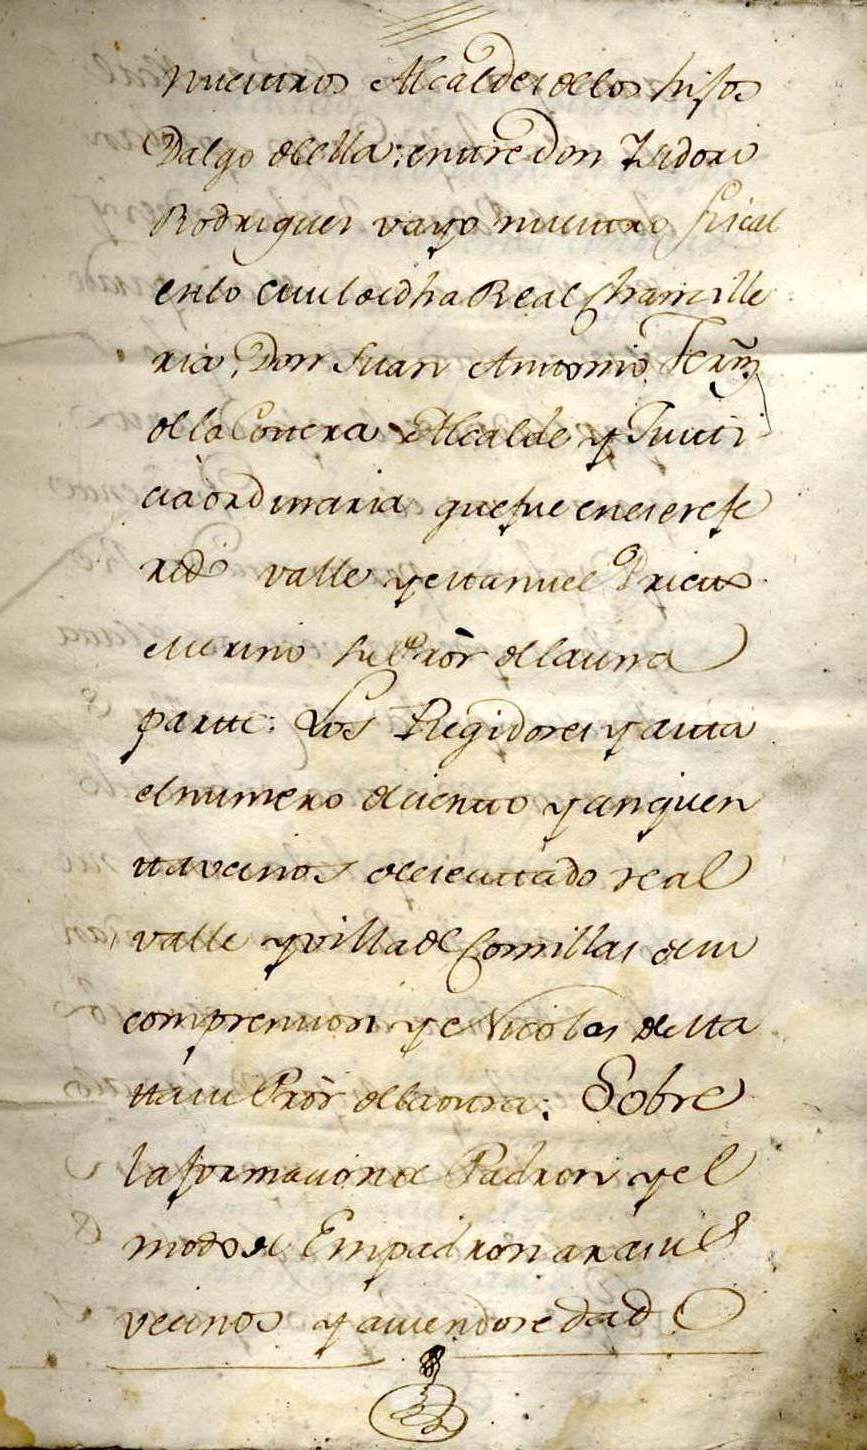 nuestros Alcaldes de los hijos
Dalgo de ella; entre Don Isidori
Rodriguez vayo nuestro fiscal
en lo civil de dha Real Chanzille
ria, Don Juan Antonio Fernz
de la Alcalde y Justi
cia ordinaria que fue en el refe
rido valle y Manuel Prieto
Merino su Pror de la una
parte: Los Regidores y asta
el numero de ciento y cinquen
ta vecinos de el citado real
valle y villa de Comillas de su
comprension y Nicolas de
su Pror de la otra; Sobre
la formacion de Padron y el
modo de Empadronar a sus
vecinos y aviendose dado